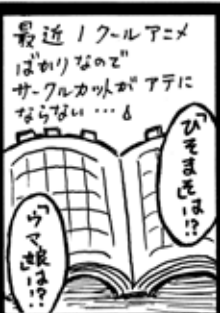 最近1クールアニメ
ばかりなので
サークルカットがアテに
ならない…
「ひそまそ」は!?
「ウマ娘」は!?